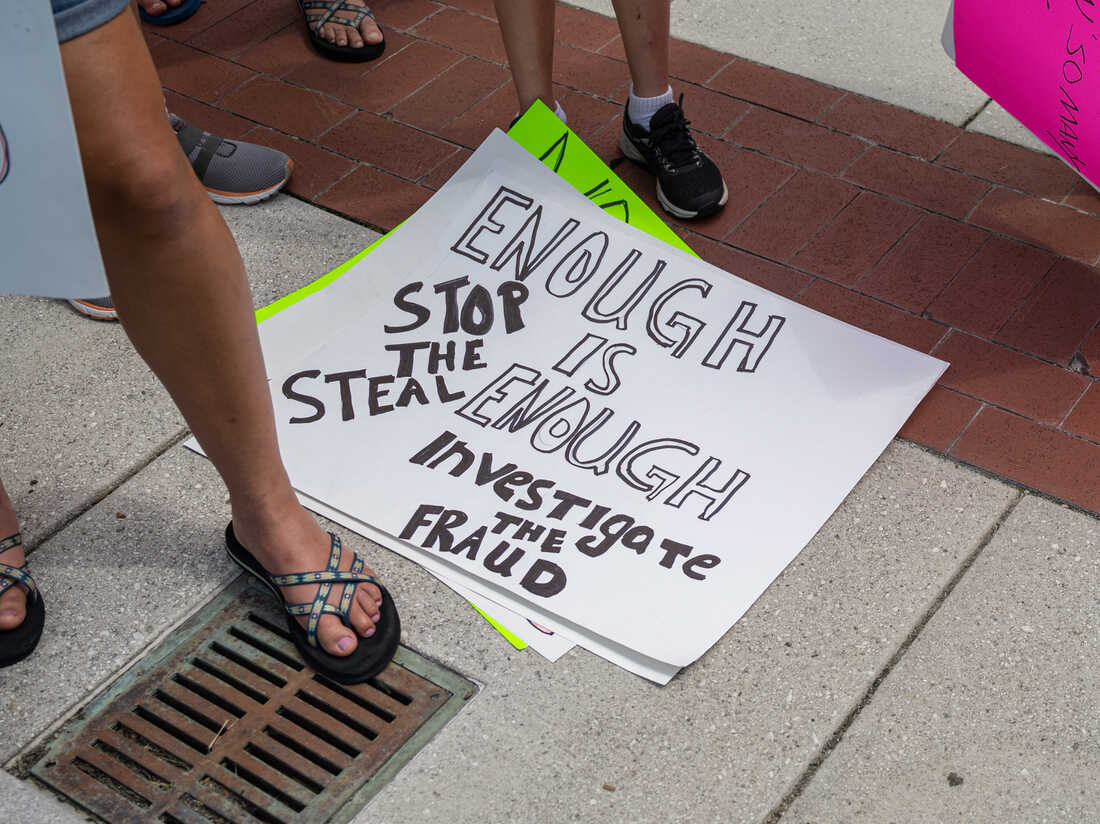 ENOUGH
IS
ENOUGH
STOP
THE
STEAL
Investigate
THE
FRAUD
SO MANY